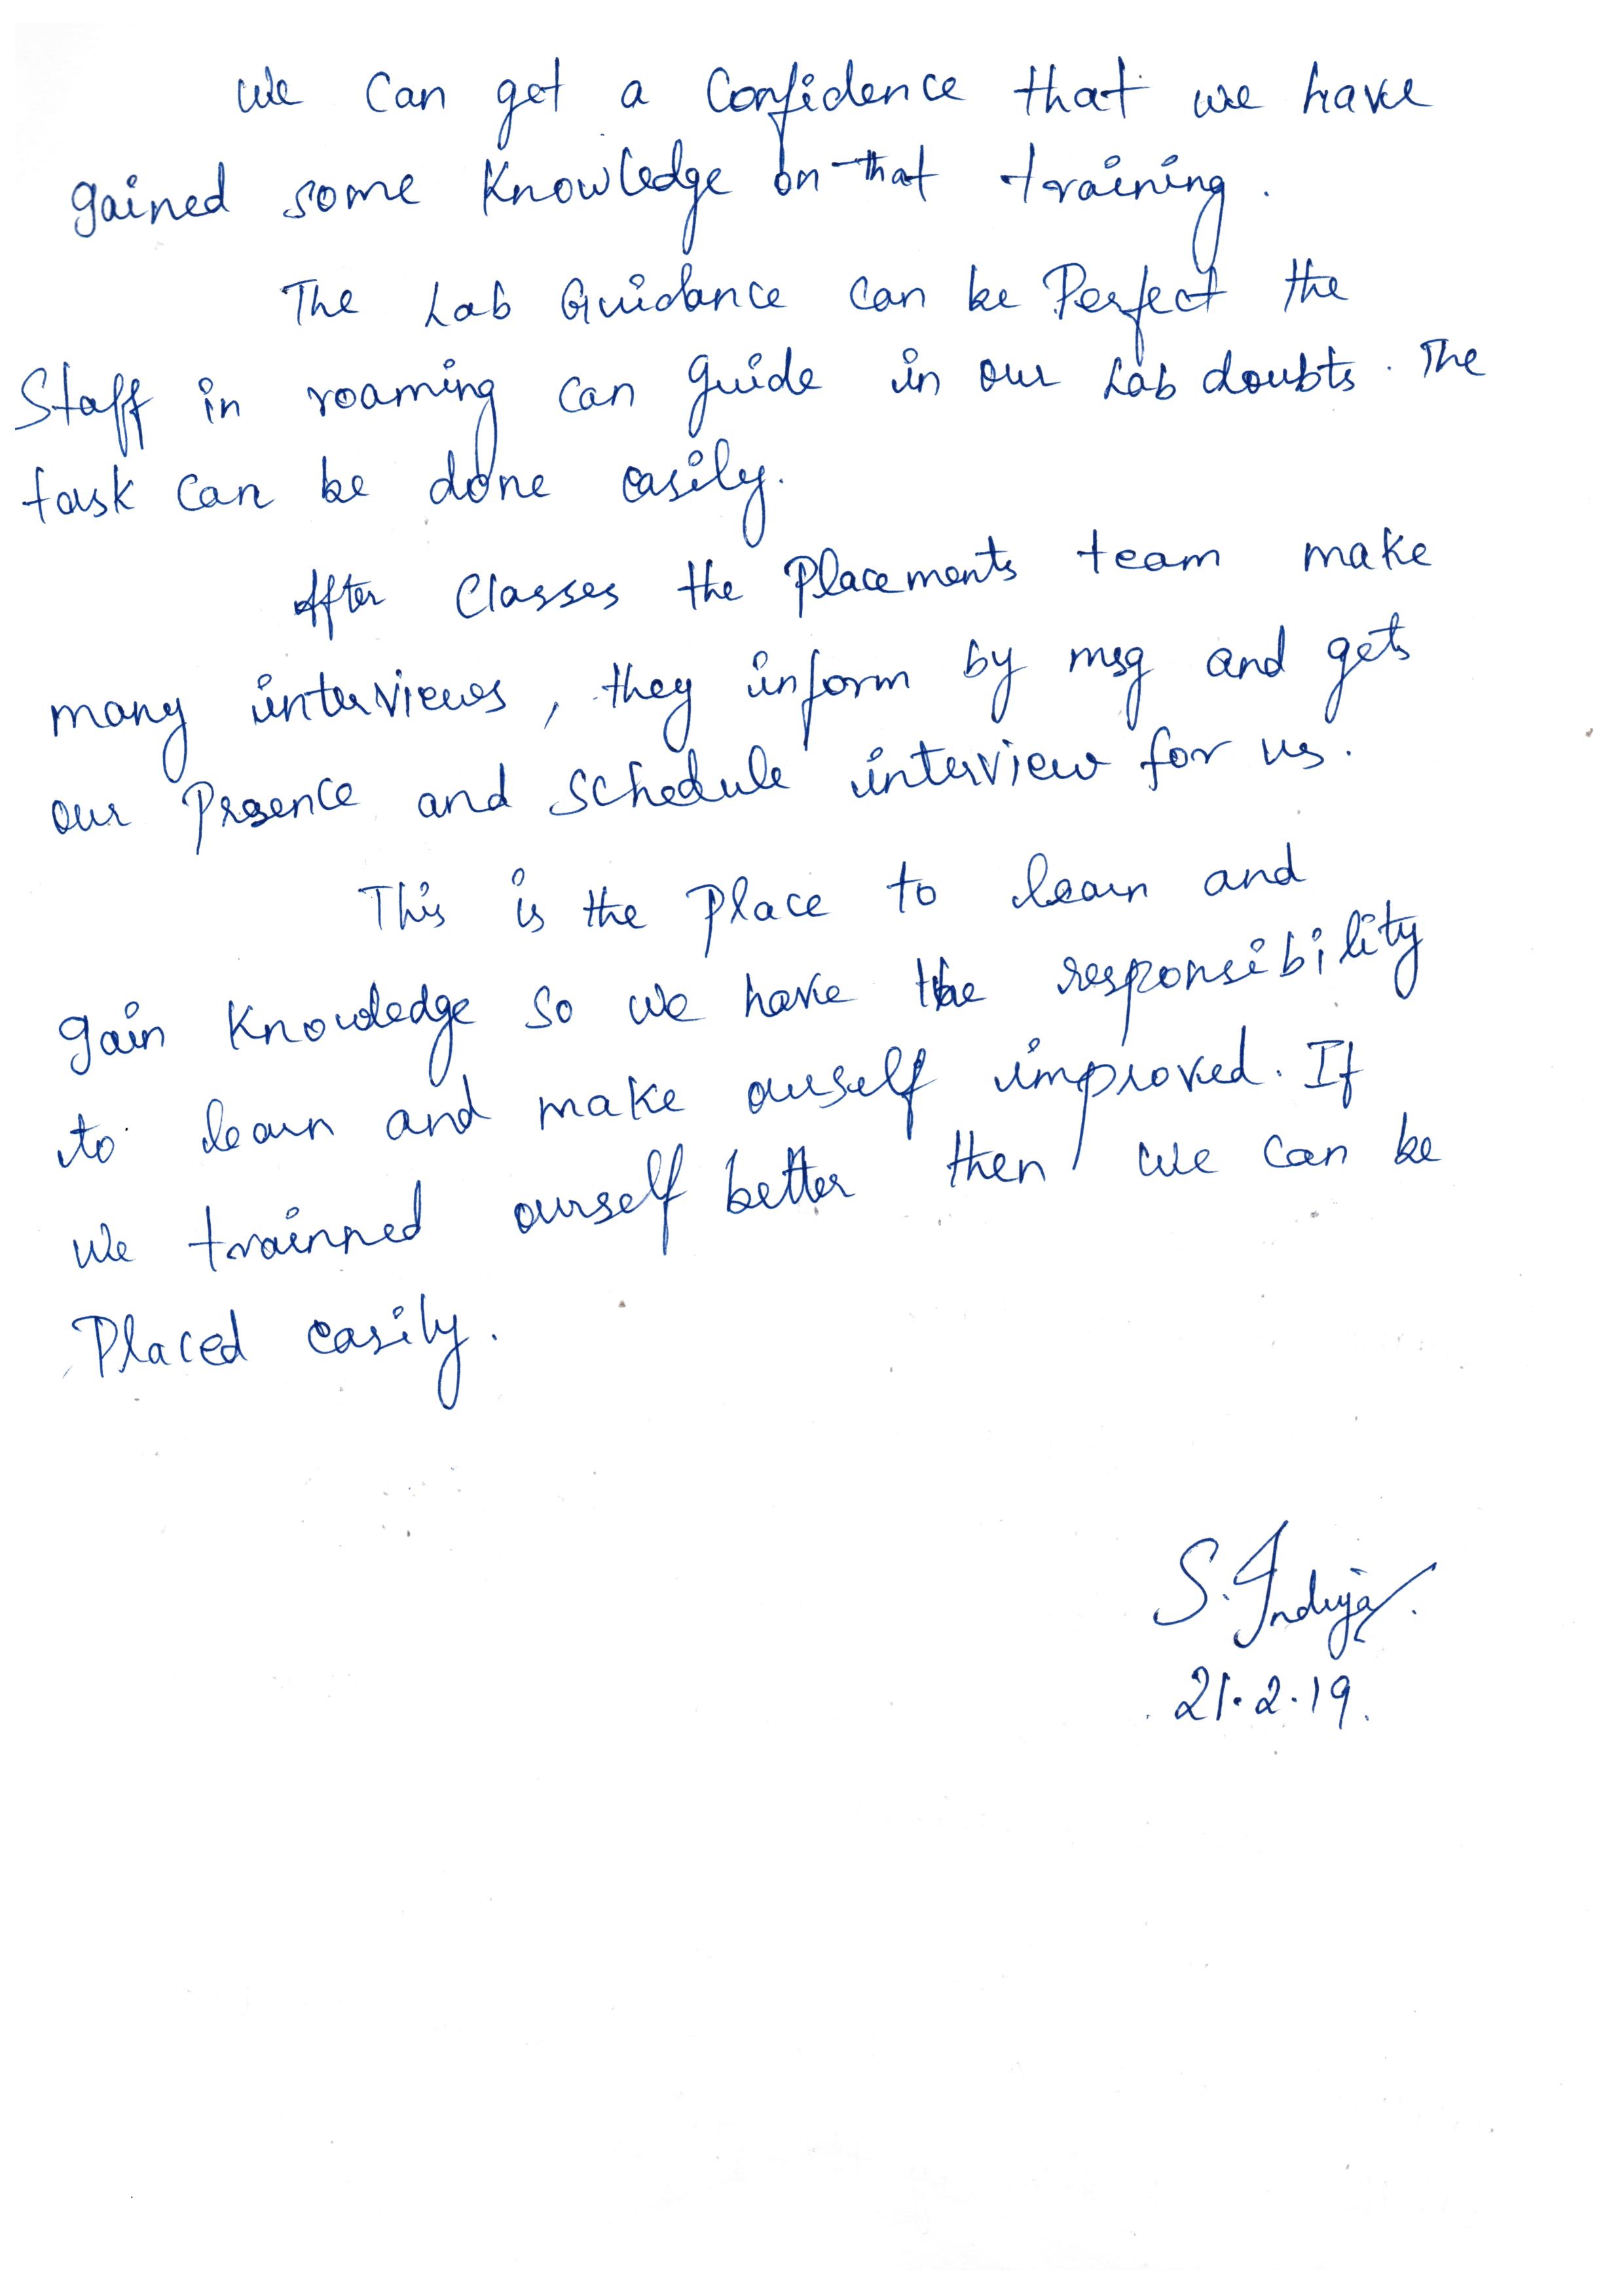 We can get a confidence that we have
gained some knowledge on that training.
The Lab Guidance can be Perfect the
Staff in roaming can guide in our Lab doubts. The
task can be done easily.
After Classes the Placements team make
many interviews, they inform by msg and gets
our Presence and schedule interview for us.
This is the place to learn and
gain knowledge so we have the responsibility
to learn and make ourself improved. If
we trainned ourself better then we can be
Placed easily.
S. Induja
21.2.19.